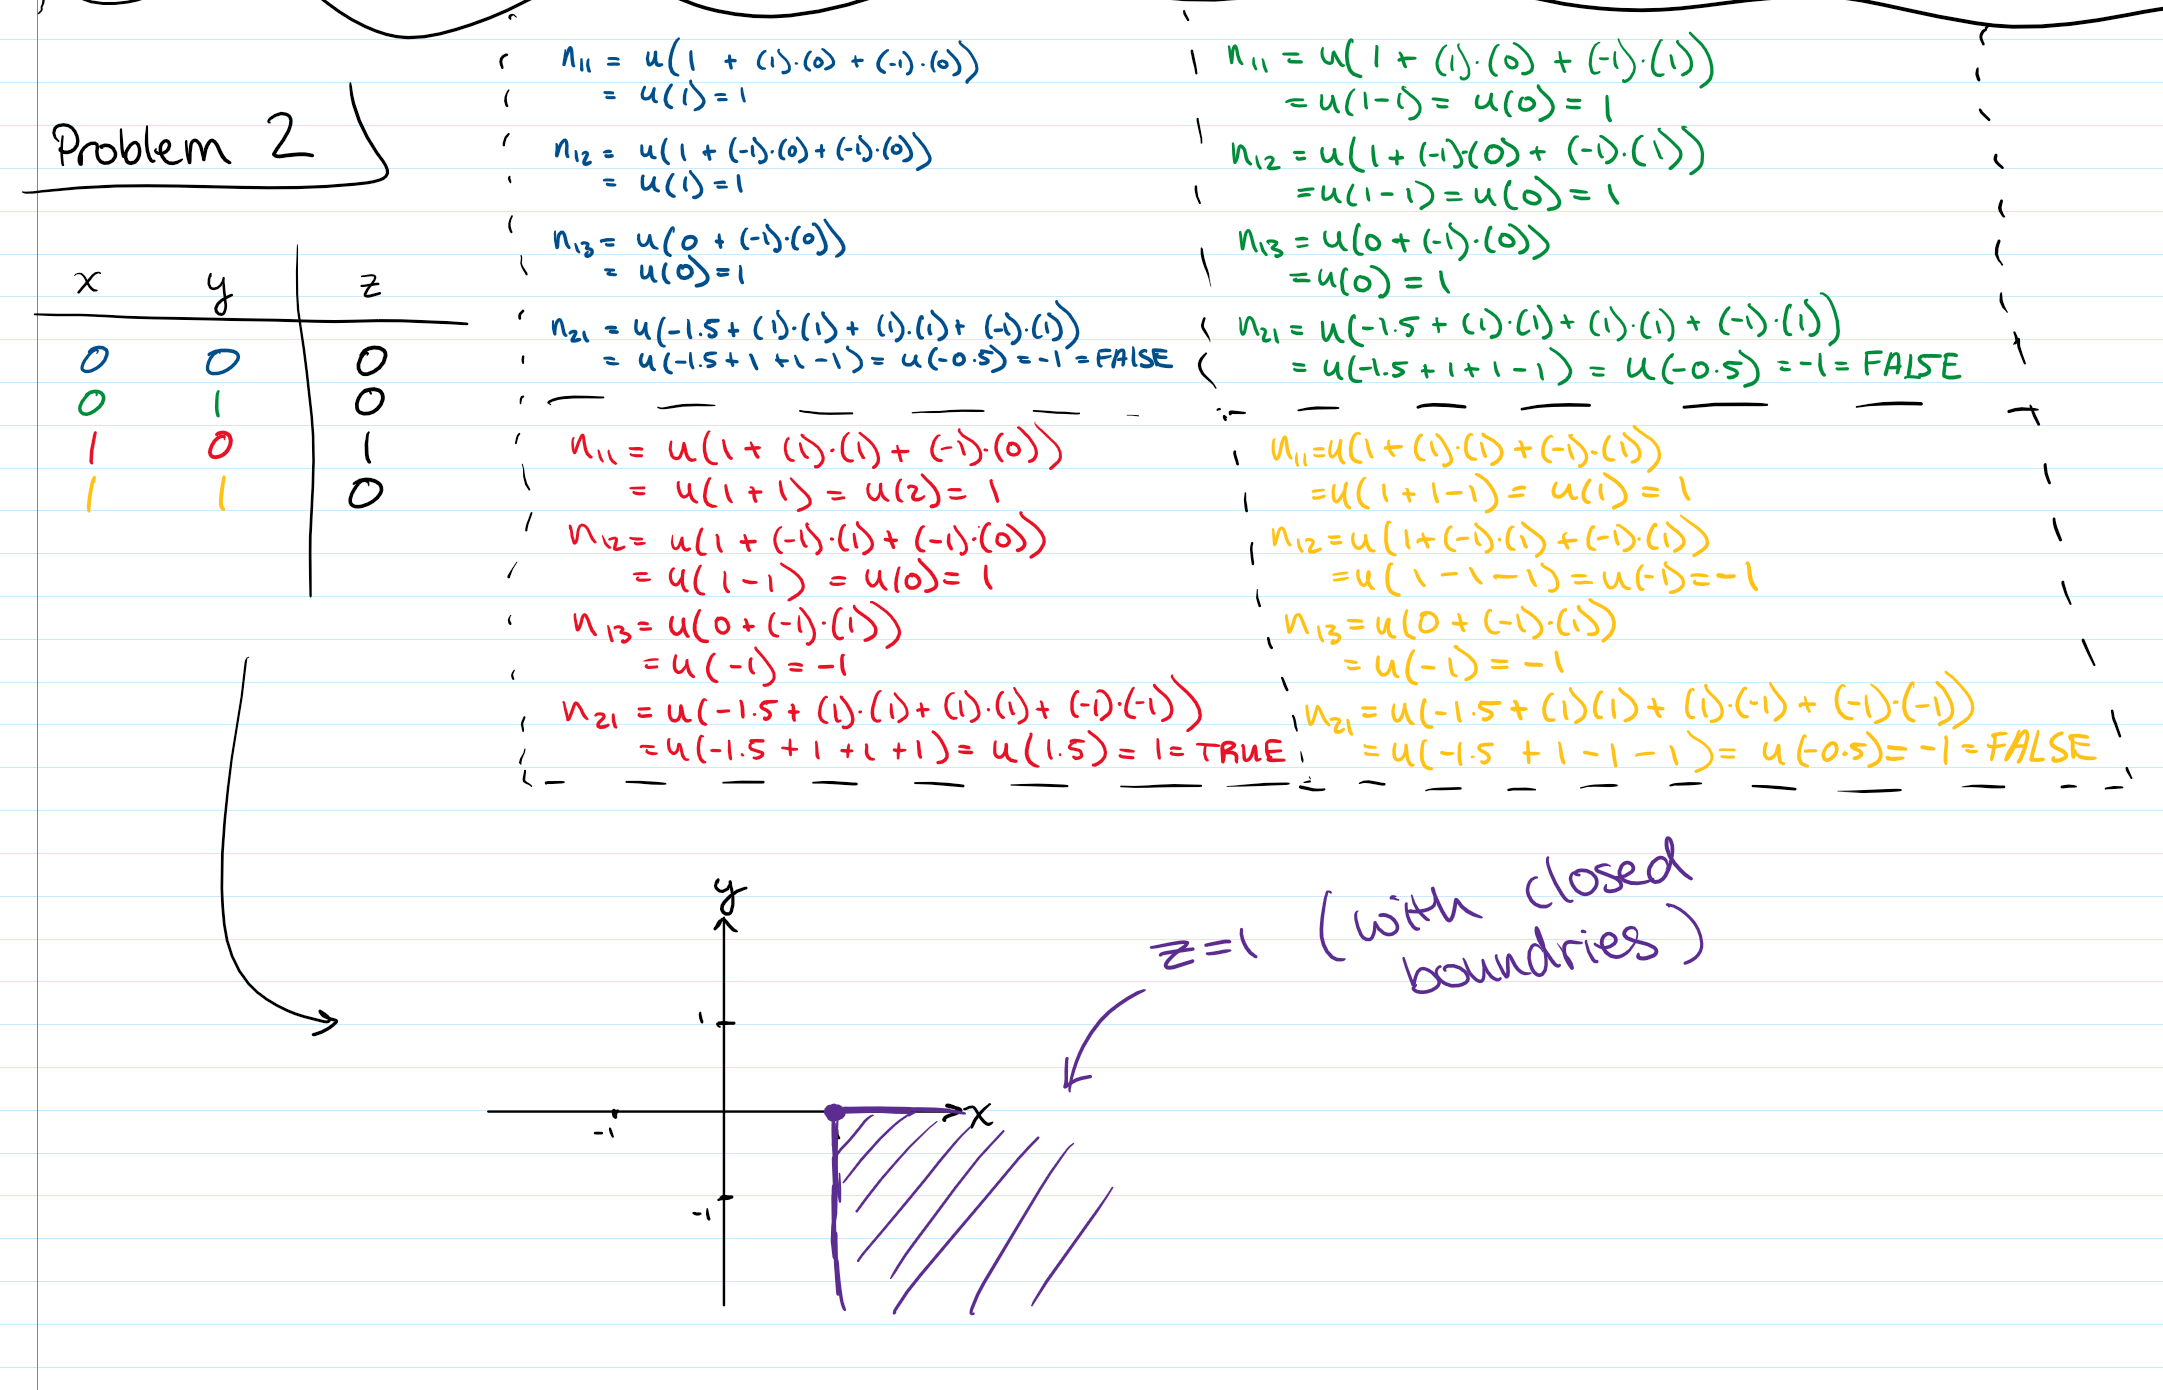 Problem 2
x y z
0 0 0
0 1 0
1 0 1
1 1 0
n11 = u(1 + (1)·(0) + (-1)·(0))
= u(1) = 1
n12 = u(1 + (-1)·(0) + (-1)·(0))
= u(1) = 1
n13 = u(0 + (-1)·(0))
= u(0) = 1
n21 = u(-1.5 + (1)·(1) + (1)·(1) + (-1)·(1))
= u(-1.5 + 1 + 1 - 1) = u(-0.5) = -1 = FALSE
n11 = u(1 + (1)·(0) + (-1)·(1))
= u(1-1) = u(0) = 1
n12 = u(1 + (-1)·(0) + (-1)·(1))
= u(1-1) = u(0) = 1
n13 = u(0 + (-1)·(0))
= u(0) = 1
n21 = u(-1.5 + (1)·(1) + (1)·(1) + (-1)·(1))
= u(-1.5 + 1 + 1 - 1) = u(-0.5) = -1 = FALSE
n11 = u(1 + (1)·(1) + (-1)·(0))
= u(1+1) = u(2) = 1
n12 = u(1 + (-1)·(1) + (-1)·(0))
= u(1-1) = u(0) = 1
n13 = u(0 + (-1)·(1))
= u(-1) = -1
n21 = u(-1.5 + (1)·(1) + (1)·(1) + (-1)·(-1))
= u(-1.5 + 1 + 1 + 1) = u(1.5) = 1 = TRUE
n11 = u(1 + (1)·(1) + (-1)·(1))
= u(1 + 1 - 1) = u(1) = 1
n12 = u(1 + (-1)·(1) + (-1)·(1))
= u(1 - 1 - 1) = u(-1) = -1
n13 = u(0 + (-1)·(1))
= u(-1) = -1
n21 = u(-1.5 + (1)(1) + (1)·(-1) + (-1)·(-1))
= u(-1.5 + 1 - 1 - 1) = u(-0.5) = -1 = FALSE
z=1 (with closed
boundries)
y
1
x
-1
-1